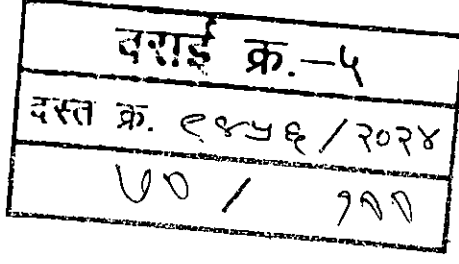 वराई क्र.–५
दस्त क्र. ९४५६ / २०२४
७० / १००